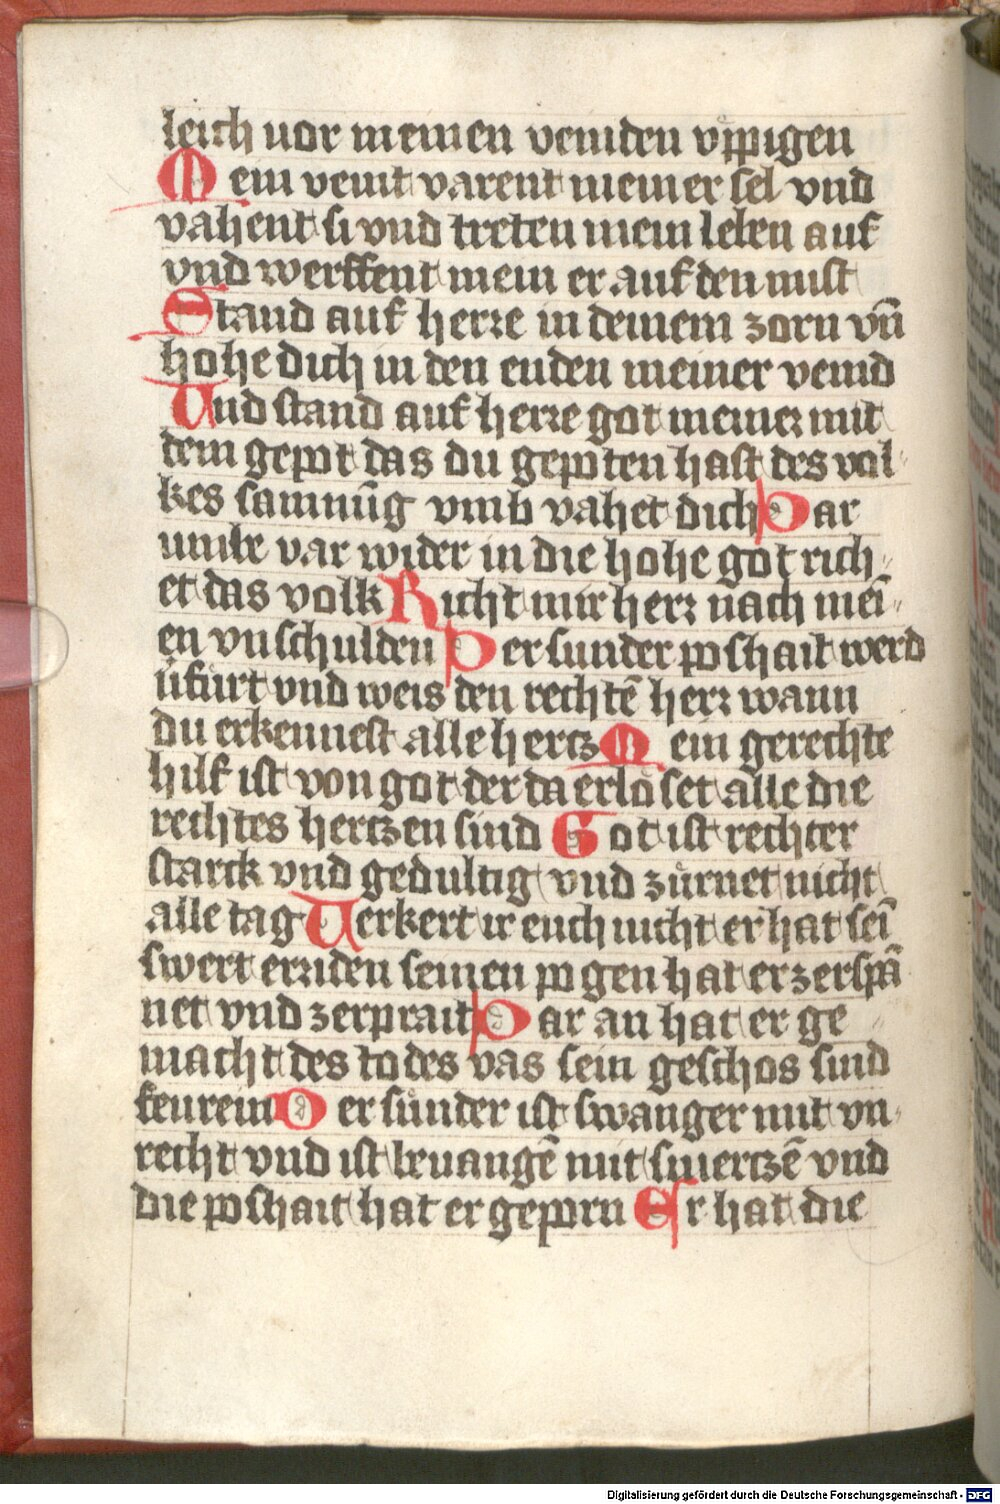 leich vor meinen veinden vppigen
Mein veint varent meiner sel vnd
vahent si vnd treten mein leben auf
vnd werffent mein er auf den mist
Stand auf herre in deinem zorn vn̄
hohe dich in den enden meiner veind
Vnd stand auf herre got meiner mit
dem gepot das du gepoten hast des vol-
kes samnūg vmb vahet dich Dar
umbe var wider in die hohe got rich-
et das volk Richt mir herr nach mei̅-
en vnschulden Der sunder poshait werd
v̈ifurt vnd weis den rechtē herr wann
du erkennest alle hertz Mein gerechte
hilf ist von got der da erlöset alle die
rechtes hertzen sind Got ist rechter
starck vnd gedultig vnd zůrnet nicht
alle tag Verkert ir euch nicht er hat sei̅
swert erziden seinen pogen hat er zerspā
net vnd zerprait Dar an hat er ge-
macht des todes vas sein geschos sind
feurein Der sůnder ist swanger mit vn-
recht vnd ist bevangē mit smertzē vnd
die poshait hat er geporn Er hat die
Digitalisierung gefördert durch die Deutsche Forschungsgemeinschaft - DFG